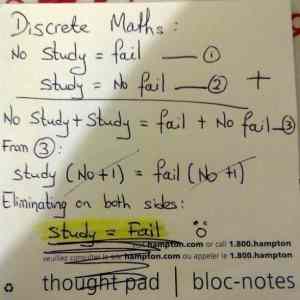 Discrete Maths:
No Study = fail — ①
Study = No fail — ② +
No Study + Study = fail + No fail — ③
From ③:
study (No + 1) = fail (No + 1)
Eliminating on both sides:
Study = Fail
visit hampton.com or call 1.800.hampton
veuillez consulter le site hampton.com ou appeler le 1.800.hampton
thought pad | bloc-notes